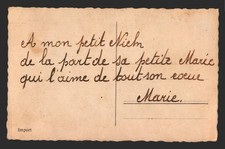 A mon petit
de la part de sa petite Marie
qui l'aime de tout son cœur
Marie.